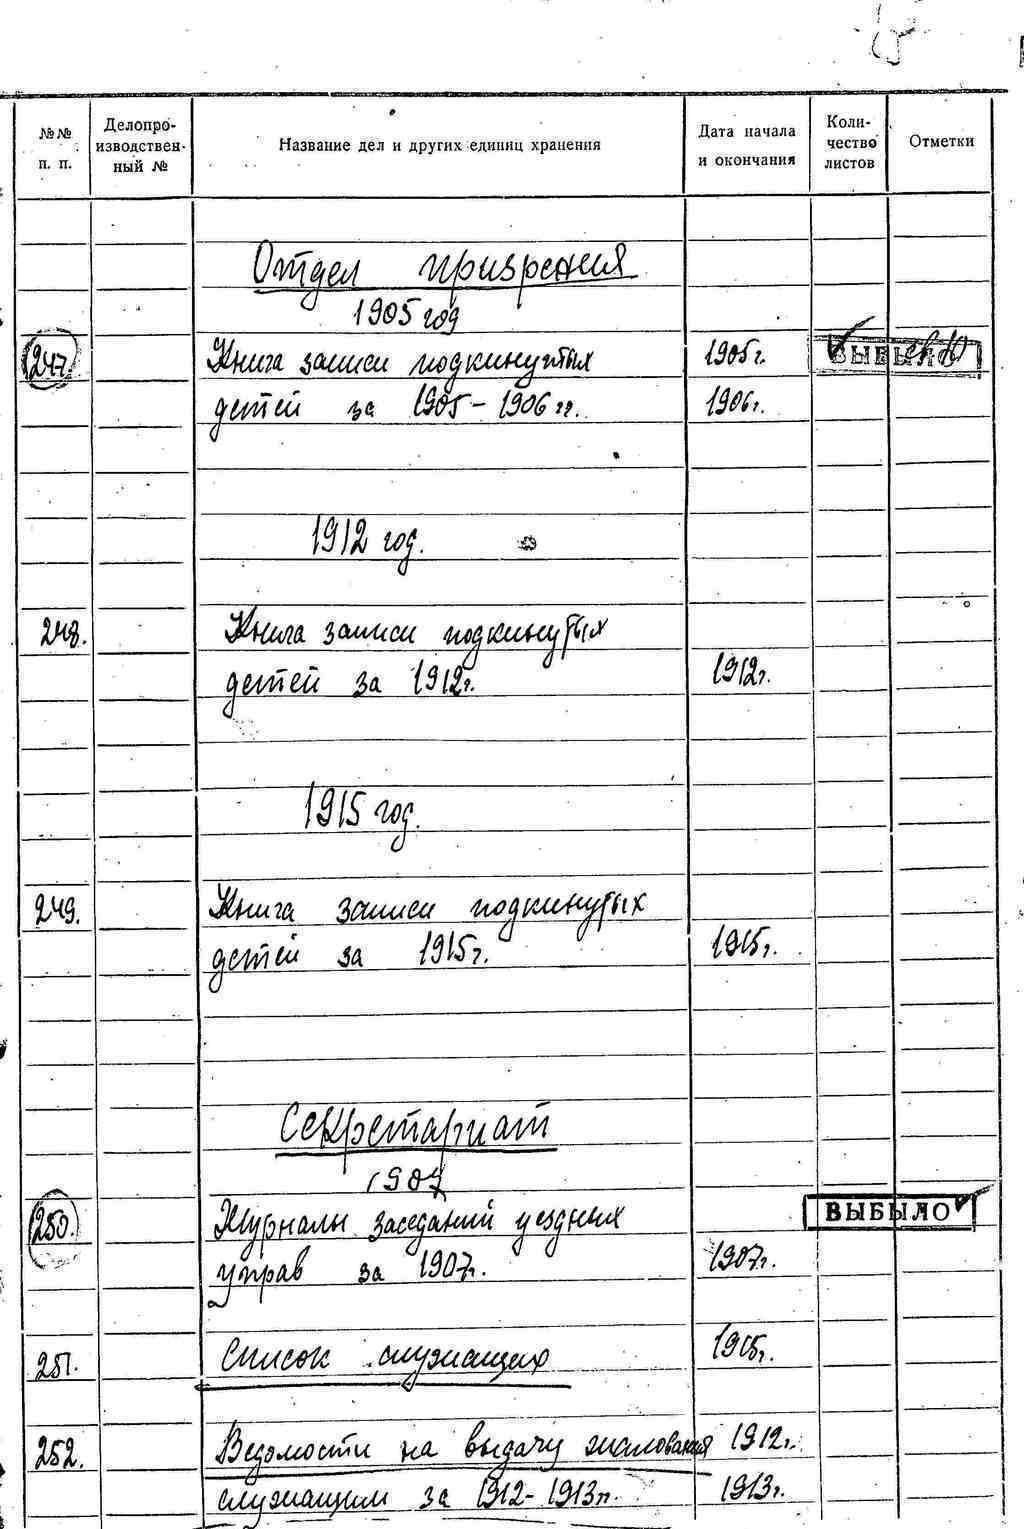 №№ п. п.
Делопро-
изводствен-
ный №
Название дел и других единиц хранения
Дата начала
и окончания
Коли-
чество
листов
Отметки
Отдел призрения
1905 год
247. Книга записи подкинутых 1905г. ВЫБЫЛО
детей за 1905-1906 гг. 1906г.
1912 год.
248. Книга записи подкинутых
детей за 1912г. 1912г.
1915 год.
249. Книга записи подкинутых
детей за 1915г. 1915г.
Секретариат
1907
250. Журналы заседаний уездных ВЫБЫЛО
управ за 1907г. 1907г.
251. Список служащих 1915г.
252. Ведомости на выдачу жалования 1912г.
служащим за 1912-1913гг. 1913г.